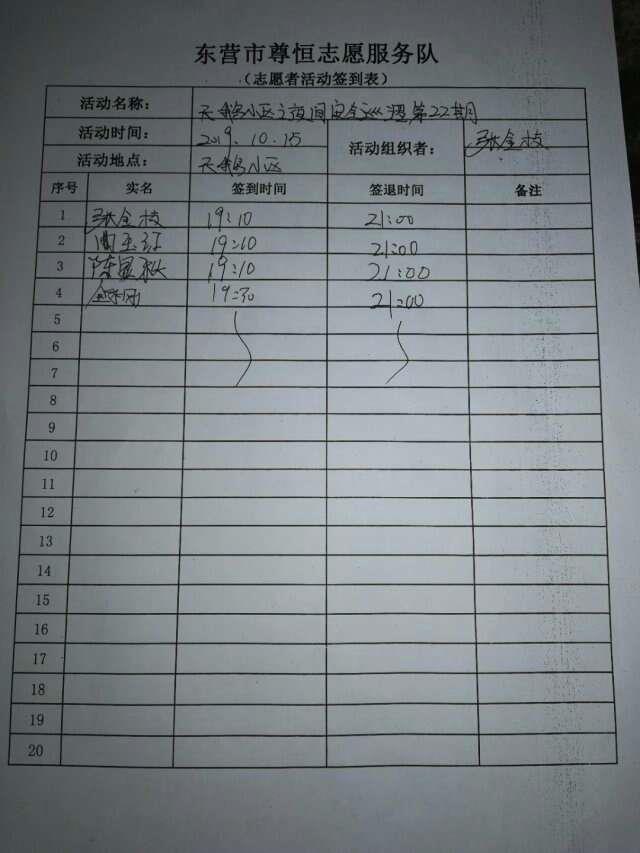 东营市尊恒志愿服务队
（志愿者活动签到表）
活动名称： 天鹅小区夜间安全巡逻第22期
活动时间： 2019.10.15 活动组织者： 张金枝
活动地点： 天鹅小区
序号 实名 签到时间 签退时间 备注
1 张金枝 19:10 21:00
2 19:10 21:00
3 19:10 21:00
4 19:30 21:00
5
6
7
8
9
10
11
12
13
14
15
16
17
18
19
20